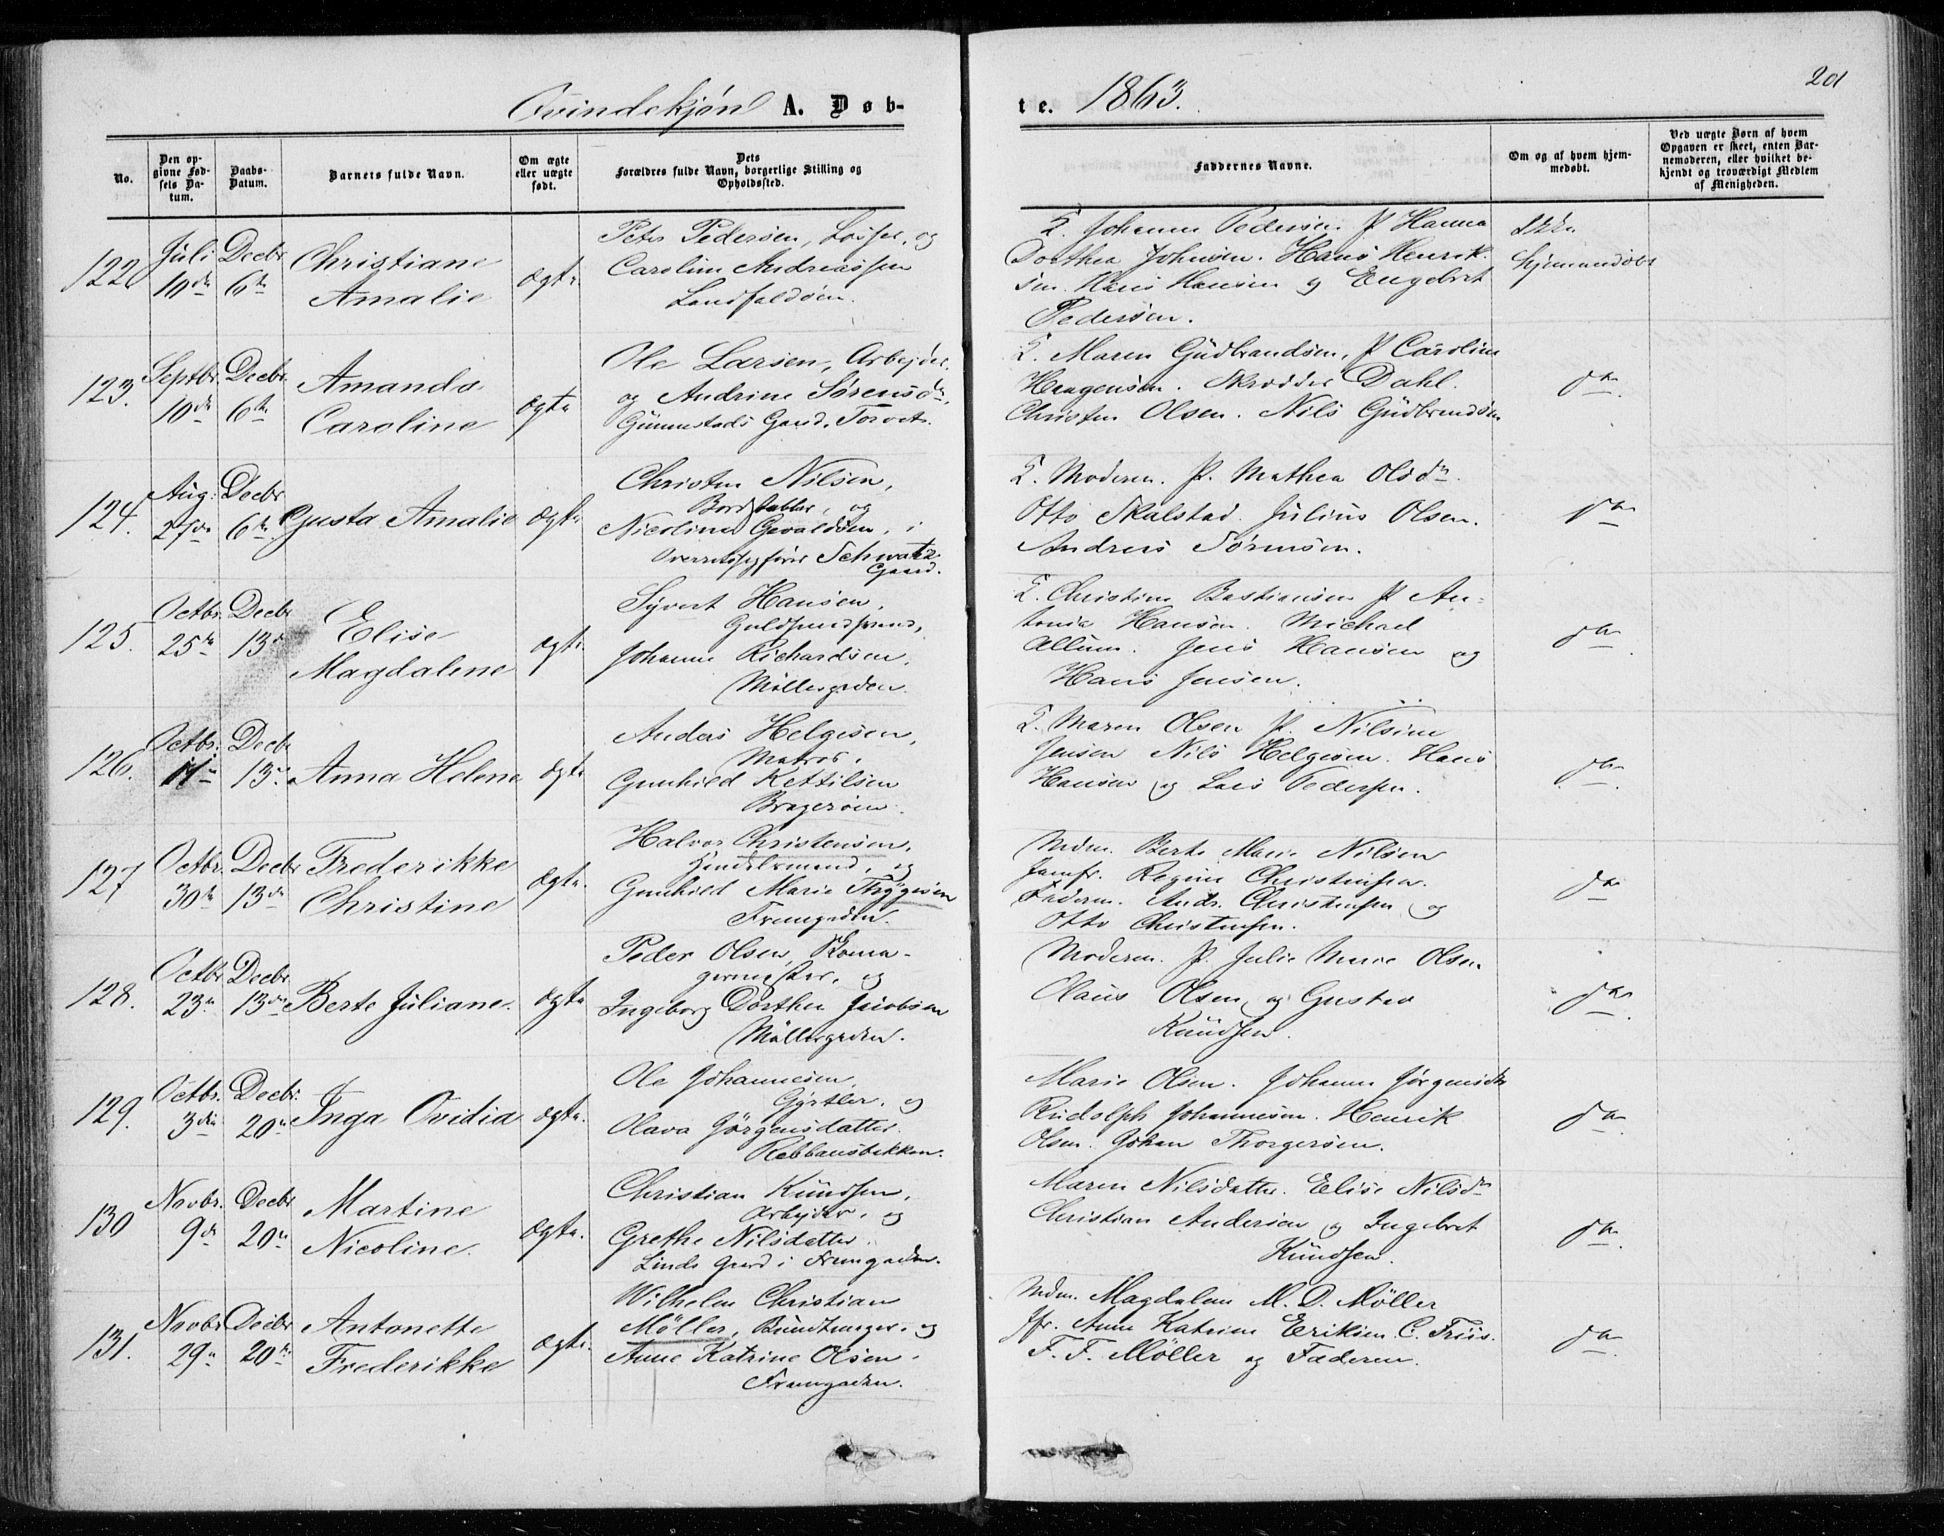 Qvindekjøn A. Døb-
te. 1863.
201
No.
Den op-
givne Fød-
sels Da-
tum.
Daabs-
Datum.
Barnets fulde Navn.
Om ægte
eller uægte
født.
Dets
Forældres fulde Navn, borgerlige Stilling og
Opholdssted.
Faddernes Navne.
Om og af hvem hjem-
medøbt.
Ved uægte Børn af hvem
Opgaven er skeet, enten Bar-
nemoderen, eller hvilket be-
kjendt og troværdigt Medlem
af Menigheden.
122
Juli
10de
Decbr
6te
Christiane
Amalie
ægte
Peter Pedersen, og
Caroline Andreassen
Landfaldøen.
Johanne Pedersen P Hanna
Dorthea Johnsen. Hans Henrik-
sen. Hans Hansen og Engebret
Pedersen.
Ikke
hjemmedøbt
123.
Septbr.
10de
Decbr
6te
Amanda
Caroline
ægte
Ole Larsen, Arbejder
og Andrine Sørensdr.
Gunnestads Gaard. Torvet.
Maren Gudbrandsen, P Caroline
Haagensen. Skrædder Dahl.
Christen Olsen. Nils Gudbrandsen
do
124.
Aug.
27de
Decbr
6te
Gusta Amalie
ægte
Christen Nilsen,
Bordstabler, og
Nicoline Gevaldsen,
Overretssagfører Schwartz
Gaard.
Moderen. P. Mathea Olsdr.
Otto Skalstad. Julius Olsen.
Andreas Sørensen.
do
125.
Octbr.
25de
Decbr
13de
Elise
Magdalene
ægte
Syvert Hansen,
Guldsmedsvend,
Johanne Richardsen,
Møllergaden.
Christine Bastiansen P An-
tonia Hansen. Michael
Allum. Jens Hansen og
Hans Jensen.
do
126.
Octbr.
11te
Decbr
13de
Anna Helene
ægte
Anders Helgesen,
Matros,
Gunhild Kettilsen
Bragerøen.
Maren Olsen P. Nilsine
Jensen Nils Helgesen. Hans
Hansen og Lars Pedersen.
do
127
Octbr.
30te
Decbr
13de
Frederikke
Christine
ægte.
Halvor Christensen,
Handelsmand, og
Gunhild Marie Thygesen
Fremgaden.
Mdm. Berte Marie Nilsen
Jomfr. Regine Christensen.
Faderen. Andr. Christensen og
Otto Christensen.
do
128.
Octbr
23de
Decbr
13de
Berte Juliane.
ægte
Peder Olsen, Koma-
germester, og
Ingeborg Dorthea Jacobsen
Møllergaden.
Moderen. P. Julie Marie Olsen
Olaus Olsen og Gustav
Knudsen.
do
129.
Octbr.
3die
Decbr.
20de
Inga Ovidia
ægte.
Ole Johannesen,
Gjørtler, og
Olava Jørgensdatter.
Rebbansbakken.
Marie Olsen. Johanne Jørgensdr
Rudolph Johannesen. Henrik
Olsen. Johan Thorgersen.
do
130
Novbr.
9de
Decbr
20de
Martine
Nicoline.
ægte.
Christian Knudsen,
Arbejder, og
Grethe Nilsdatter.
Linds Gaard i Fremgaden.
Maren Nilsdatter. Elise Nilsdr
Christian Andersen og Ingebret
Knudsen.
do
131.
Novbr
29de
Decbr
20de
Antonette
Frederikke
ægte.
Wilhelm Christian
Møller, Bundtmager, og
Anne Katrine Olsen.
Fremgaden.
Mdm. Magdalene M. D. Møller
Jfr. Anne Katrine Eriksen. C. Friis.
F. F. Møller og Faderen.
do